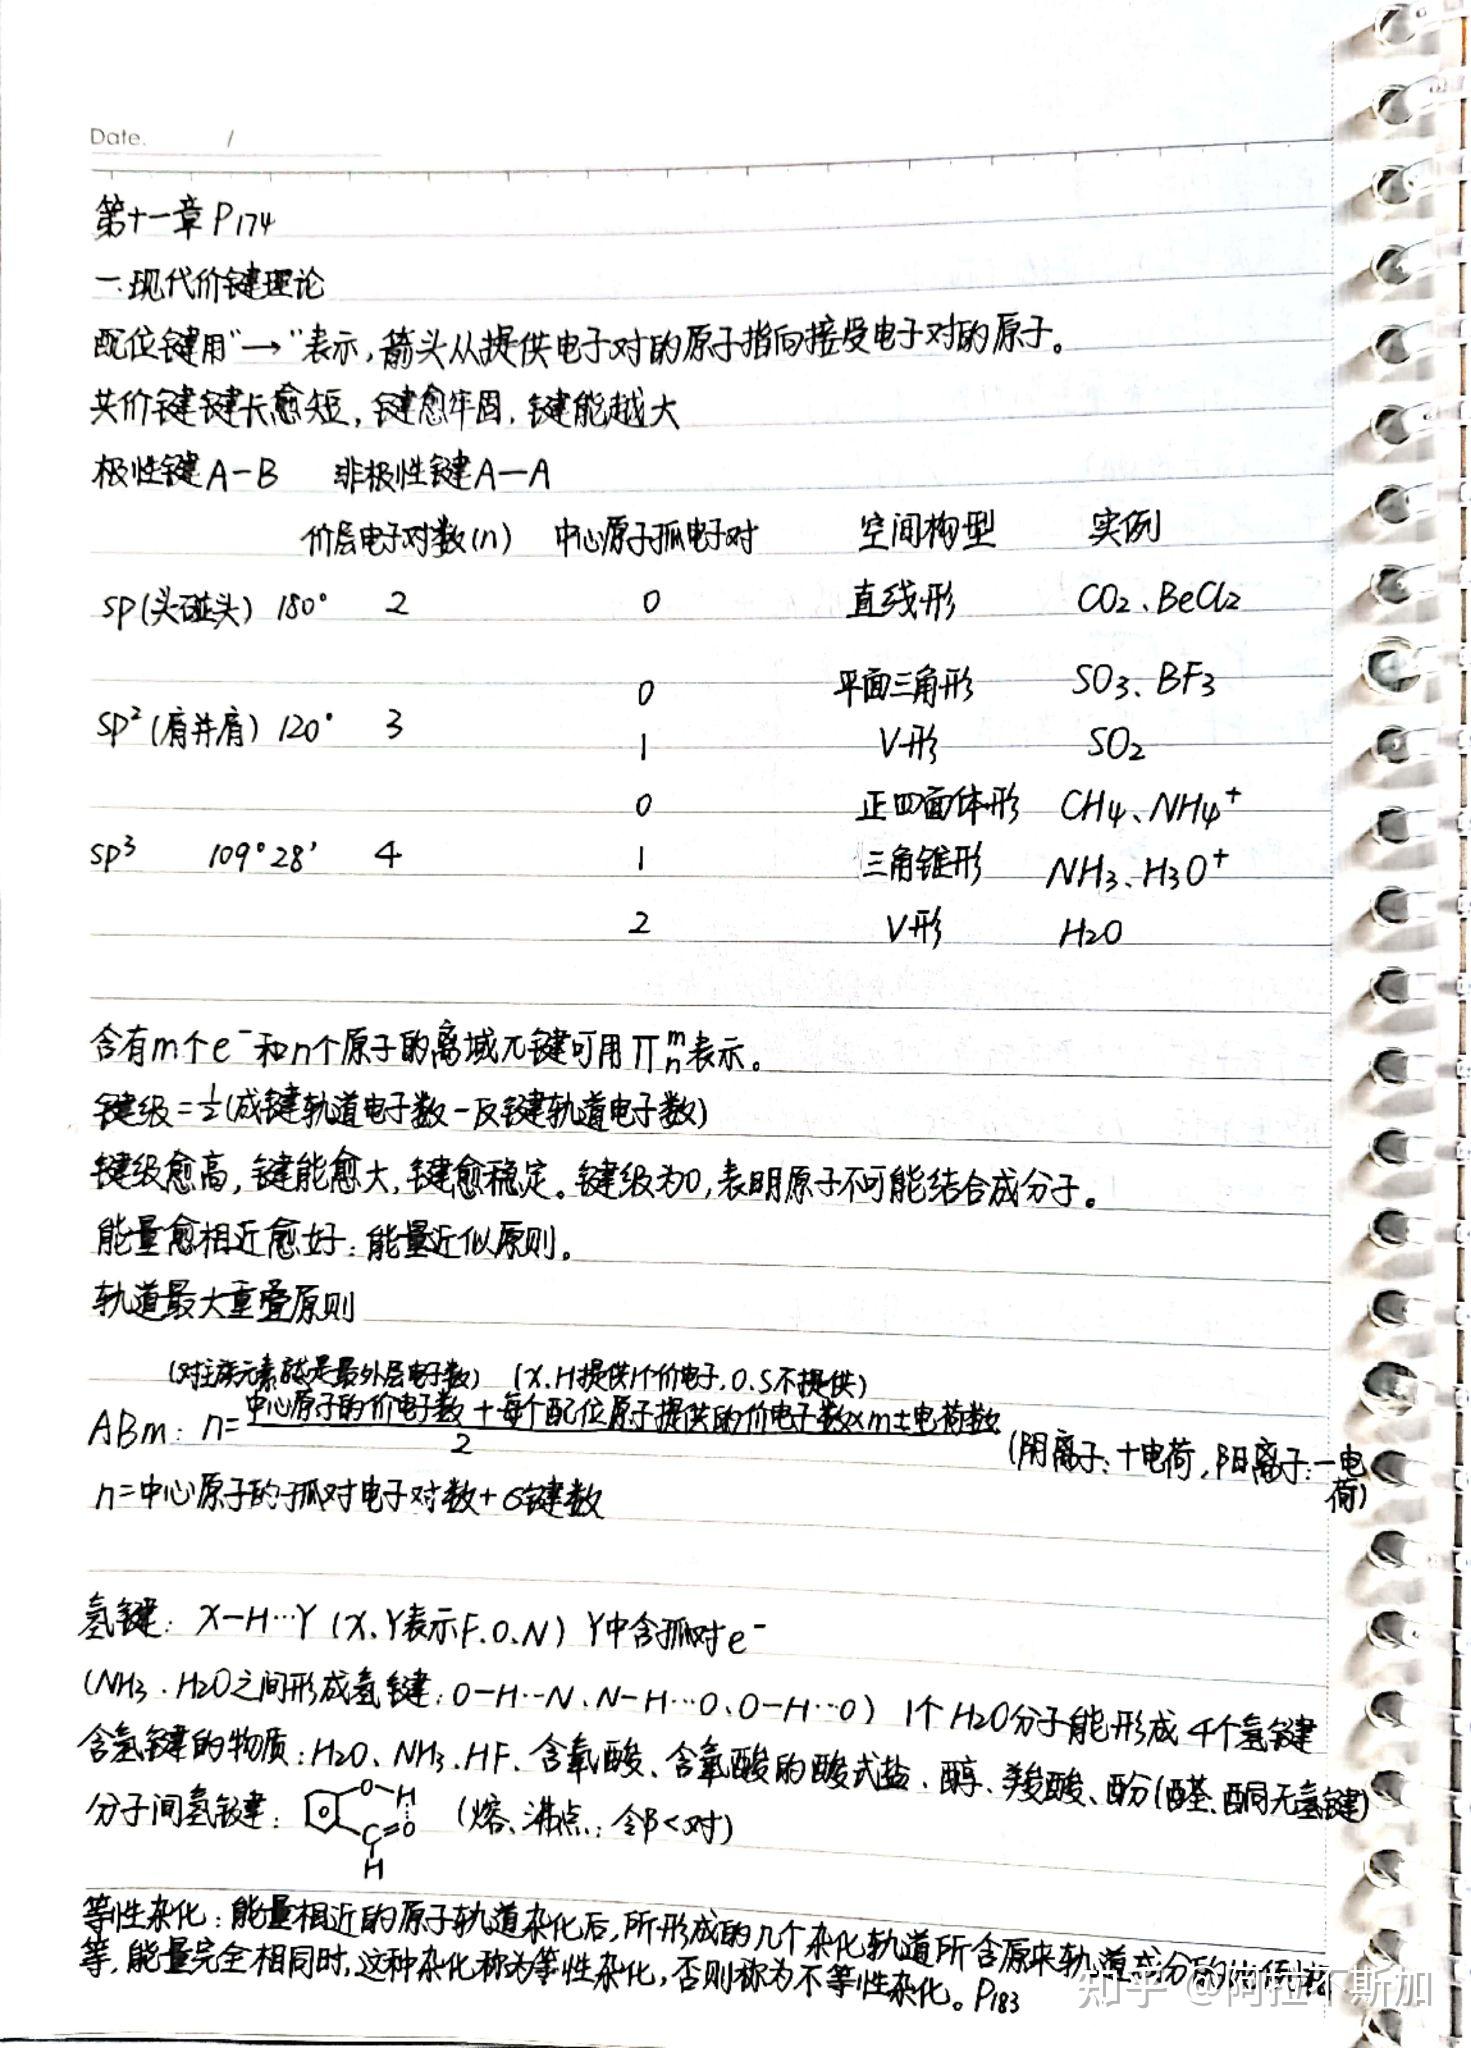 Date. /
第十一章 P174
一.现代价键理论
配位键用“→”表示,箭头从提供电子对的原子指向接受电子对的原子。
共价键键长愈短,键愈牢固,键能越大
极性键A-B 非极性键A—A
价层电子对数(n) 中心原子孤电子对 空间构型 实例
sp(头碰头) 180° 2 0 直线形 CO₂、BeCl₂
0 平面三角形 SO₃、BF₃
sp²(肩并肩) 120° 3
1 V形 SO₂
0 正四面体形 CH₄、NH₄⁺
sp³ 109°28' 4 1 三角锥形 NH₃、H₃O⁺
2 V形 H₂O
含有m个e⁻和n个原子的离域π键可用πₙᵐ表示。
键级=½(成键轨道电子数-反键轨道电子数)
键级愈高,键能愈大,键愈稳定。键级为0,表明原子不可能结合成分子。
能量愈相近愈好:能量近似原则。
轨道最大重叠原则
(对主族元素就是最外层电子数) (X、H提供1个价电子,O、S不提供)
ABm: n=中心原子的价电子数+每个配位原子提供的价电子数×m±电荷数
2
(阴离子:+电荷,阳离子:-电
荷)
n=中心原子的孤对电子对数+σ键数
氢键: X-H…Y (X、Y表示F、O、N) Y中含孤对e⁻
(NH₃、H₂O之间形成氢键:O-H…N、N-H…O、O-H…O) 1个H₂O分子能形成4个氢键
含氢键的物质:H₂O、NH₃、HF、含氧酸、含氧酸的酸式盐、醇、羧酸、酚(醛、酮无氢键)
分子间氢键: O H C=O H (熔、沸点:邻<对)
等性杂化:能量相近的原子轨道杂化后,所形成的几个杂化轨道所含原来轨道成分的比例
等,能量完全相同时,这种杂化称为等性杂化,否则称为不等性杂化。P183
知乎 @阿拉不斯加